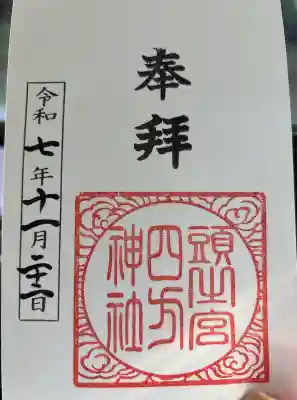 奉拝
令和七年十一月二十三日
頭之宮
四方
神社